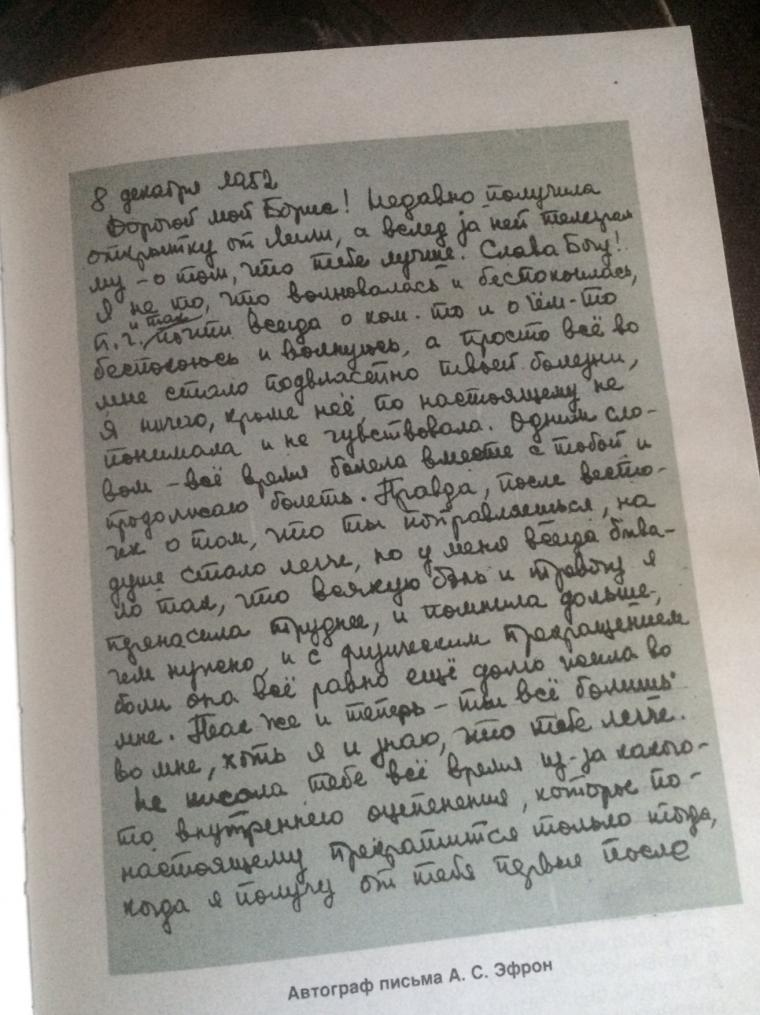 8 декабря 1952
Дорогой мой Борис! Недавно получила
открытку от Лили, а вслед за ней телеграм
му – о том, что тебе лучше. Слава Богу!
Я не то, что волновалась и беспокоилась,
т.ч. и так почти всегда о ком-то и о чём-то
беспокоюсь и волнуюсь, а просто всё во
мне стало подвластно твоей болезни,
я ничего, кроме неё, по настоящему не
понимала и не чувствовала. Одним сло-
вом – всё время болела вместе с тобой и
продолжаю болеть. Правда, после весто-
чек о том, что ты поправляешься, на
душе стало легче, но у меня всегда быва-
ло так, что всякую боль и тревогу я
переносила труднее, и помнила дольше,
чем нужно, и с физическим прекращением
боли она всё равно ещё долго жила во
мне. Так же и теперь – ты всё болишь
во мне, хоть я и знаю, что тебе легче.
Не писала тебе всё время из-за какого-
то внутреннего оцепенения, которое по-
настоящему прекратится только тогда,
когда я получу от тебя первые после
Автограф письма А. С. Эфрон